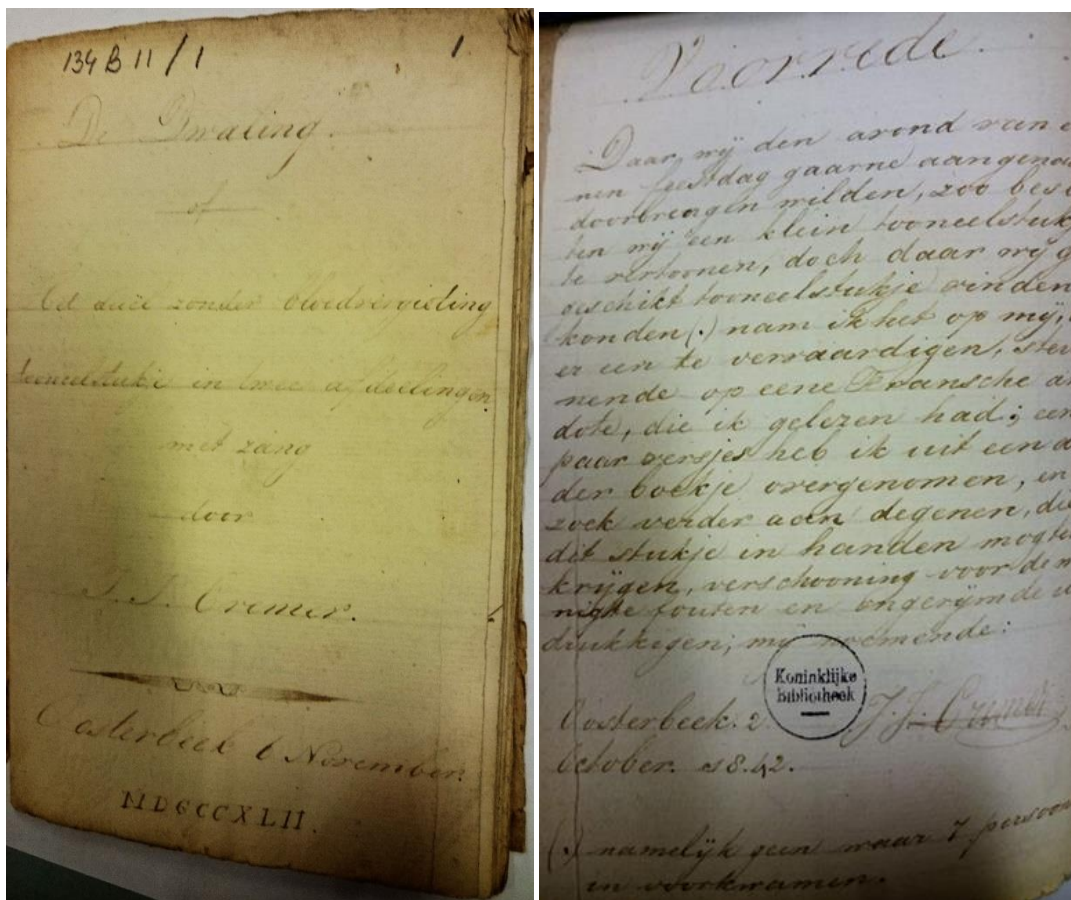 134 B 11 / 1 1.
De Dwaling.
of
Het duel zonder bloedvergieting
tooneelstukje in twee afdeelingen
met zang
door
J. J. Cremer.
Oosterbeek 6 November
MDCCCXLII.
Voorrede.
Daar wij den avond van
nen feestdag gaarne aangenaa
doorbrengen wilden, zoo besl
ten wij een klein tooneelstukj
te vertoonen, doch daar wij g
geschikt tooneelstukje vinden
konden (.) nam ik het op mij,
er een te vervaardigen, steu
nende op eene Fransche an
dote, die ik gelezen had; een
paar versjes heb ik uit een a
der boekje overgenomen, en
zoek verder aan degenen, die
dit stukje in handen mogte
krijgen, verschooning voor de m
nigte fouten en ongerijmde u
drukkigen, mij noemende:
Koninklijke
Bibliotheek
Oosterbeek. 2 J. J. Cremer
October. 1842.
(.) namelijk geen waar 7 persoon
in voorkwamen.